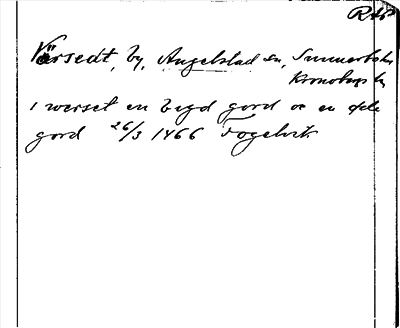 RAp
Värsedt, by, Angelstad sn, Sunnerbo hd,
Kronobergs l.
i werset en bygd gord oc en øde
gord 26/3 1466 Fogelvik